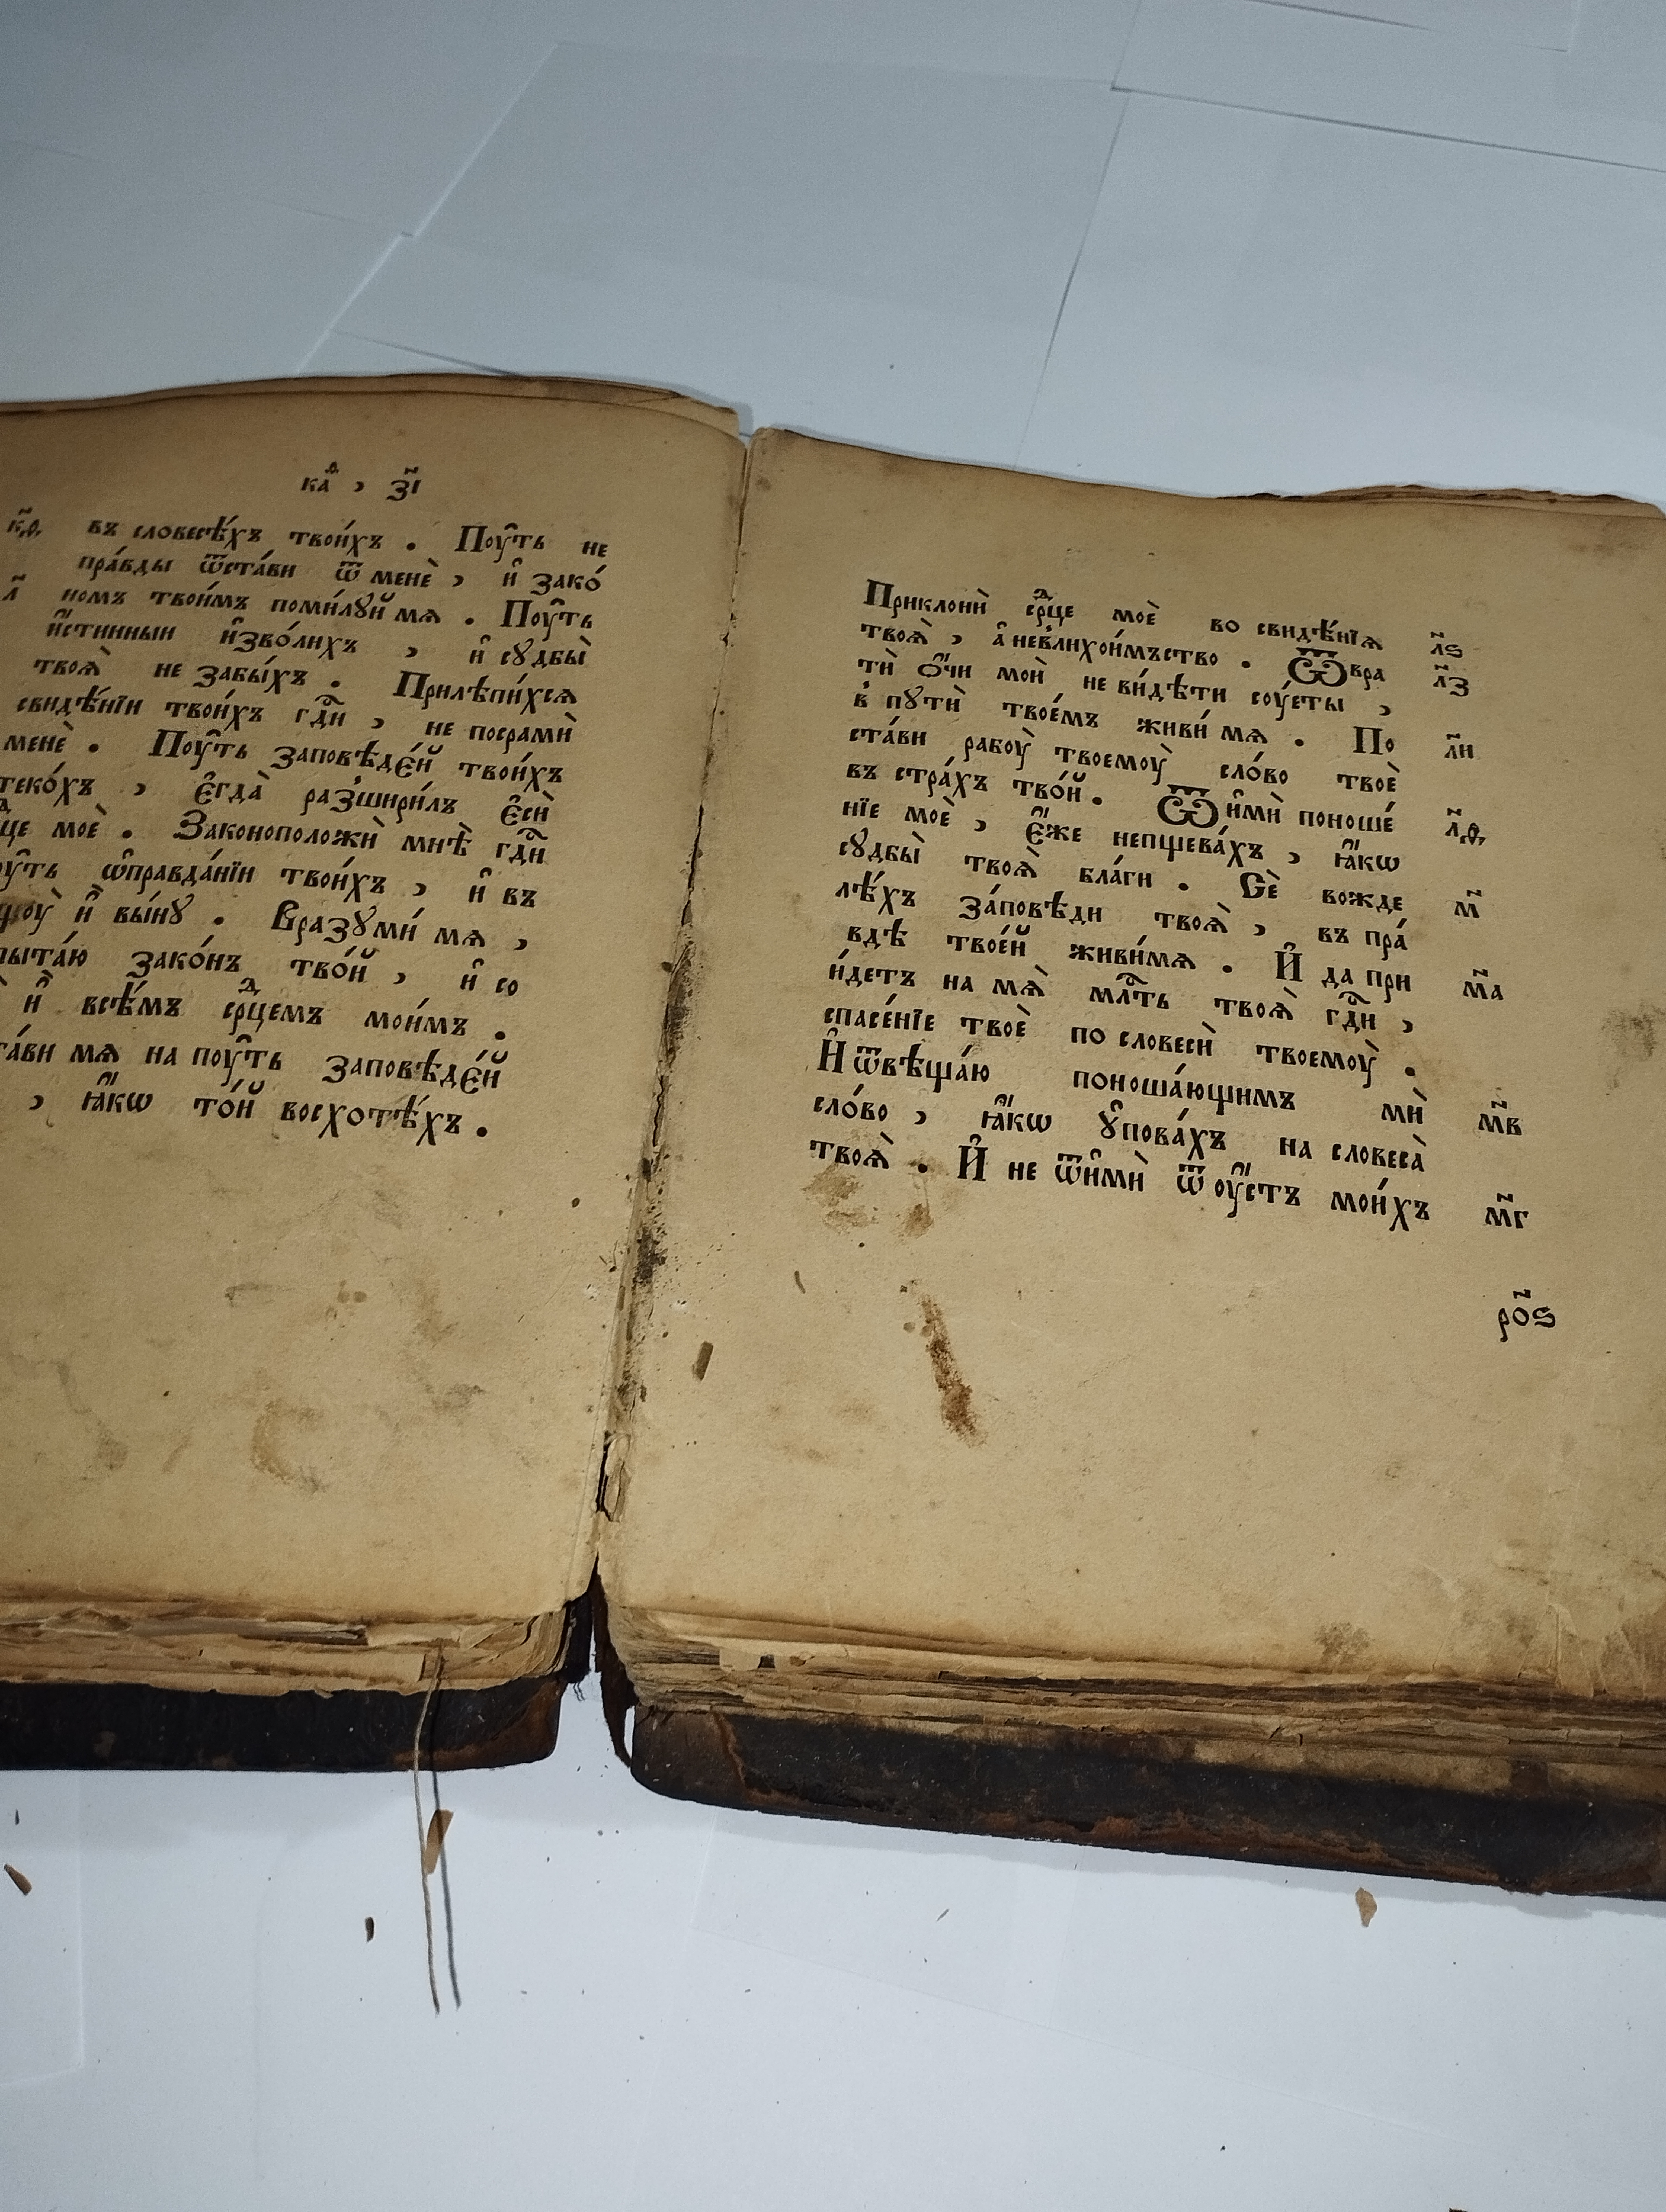 каѳ , зі҃
к҃ѳ въ словесѣ́хъ твои́хъ . Поу́ть не
пра́вды ѿста́ви ѿ менѐ , и҆ зако́
л҃ номъ твои́мъ поми́лꙋй мѧ . Поу́ть
и҆́стинныи и҆зво́лихъ , и҆ сꙋдбы̀
твоѧ̀ не забы́хъ . Прилѣпи́хсѧ
свидѣ́нїи твои́хъ гдⷭ҇и , не посрамѝ
менѐ . Поу́ть заповѣде́й твои́хъ
теко́хъ , є҆гда̀ разшири́лъ є҆сѝ
моѐ . Законоположѝ мнѣ̀ гдⷭ҇и
ѡ҆правда́нїи твои́хъ , и҆ въ
и҆̀ вы́нꙋ . Вразꙋми́ мѧ ,
зако́нъ тво́й , и҆ со
и҆̀ всѣ́мъ срⷣцемъ мои́мъ .
мѧ на поу́ть заповѣде́й
, ꙗ҆́кѡ то́й восхотѣ́хъ .
Приклонѝ срⷣце моѐ во свидѣ́нїѧ л҃ѕ
твоѧ̀ , а҆ невлихои́мъство . Ѿвра л҃з
тѝ ѻ҆́чи моѝ не ви́дѣти соу́еты ,
в̾ пꙋтѝ твое́мъ живи́ мѧ . По л҃и
ста́ви рабоу̀ твоемоу̀ сло́во твоѐ
въ стра́хъ тво́й . Ѿи҆мѝ поноше́ л҃ѳ
нїе моѐ , є҆́же непщева́хъ , ꙗ҆́кѡ
сꙋдбы̀ твоѧ̀ бла́ги . Сѐ вожде м҃
лѣ́хъ за́повѣди твоѧ̀ , въ пра́
вдѣ твое́й живи́мѧ . И҆ да при м҃а
и́детъ на мѧ̀ млⷭ҇ть твоѧ̀ гдⷭ҇и ,
спасе́нїе твоѐ по словесѝ твоемоу̀ .
И҆ ѿвѣща́ю поноша́ющимъ мѝ м҃в
сло́во , ꙗ҆́кѡ ꙋ҆пова́хъ на словеса̀
твоѧ̀ . И҆ не ѿи҆мѝ ѿ оу҆́стъ мои́хъ м҃г
ро҃ѕ